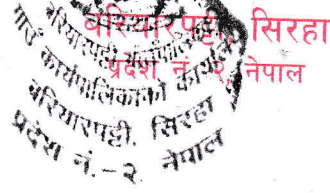 बरियारपट्टी, सिरहा
प्रदेश नं. २, नेपाल
गाउँ कार्यपालिकाको कार्यालय
बरियारपट्टी, सिरहा
प्रदेश नं.-२ नेपाल